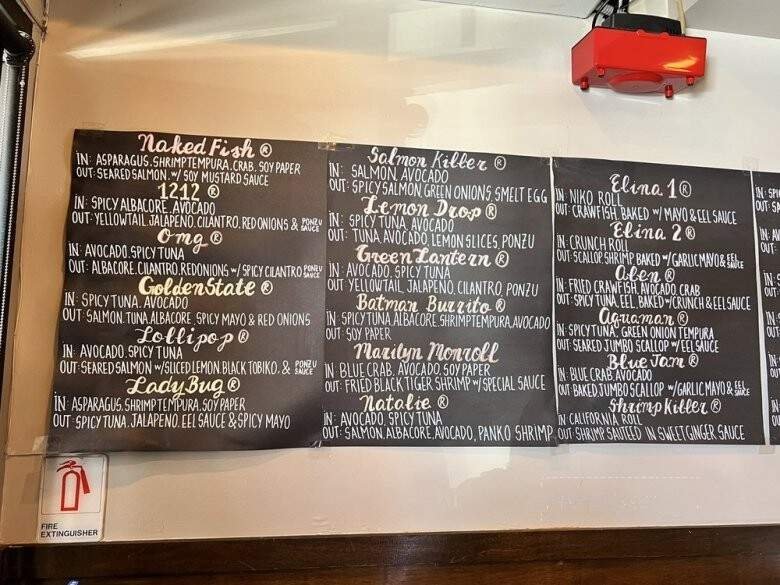 Naked Fish ®
IN: ASPARAGUS. SHRIMPTEMPURA. CRAB. SOY PAPER
OUT: SEARED SALMON. W/ SOY MUSTARD SAUCE
1212 ®
IN: SPICY ALBACORE. AVOCADO
OUT: YELLOWTAIL, JALAPENO, CILANTRO, RED ONIONS & PONZU SAUCE
Omg ®
IN: AVOCADO. SPICY TUNA
OUT: ALBACORE. CILANTRO. REDONIONS W/ SPICY CILANTRO PONZU SAUCE
Golden State ®
IN: SPICY TUNA. AVOCADO
OUT: SALMON. TUNA. ALBACORE. SPICY MAYO & RED ONIONS
Lollipop ®
IN: AVOCADO. SPICY TUNA
OUT: SEARED SALMON W/ SLICED LEMON. BLACK TOBIKO. & PONZU SAUCE
Lady Bug ®
IN: ASPARAGUS. SHRIMPTEMPURA. SOY PAPER
OUT: SPICY TUNA. JALAPENO. EEL SAUCE & SPICY MAYO
Salmon Killer ®
IN: SALMON, AVOCADO
OUT: SPICY SALMON, GREEN ONIONS, SMELT EGG
Lemon Drop ®
IN: SPICY TUNA, AVOCADO
OUT: TUNA, AVOCADO, LEMON SLICES, PONZU
Green Lantern ®
IN: AVOCADO, SPICY TUNA
OUT: YELLOWTAIL, JALAPENO, CILANTRO, PONZU
Batman Burrito ®
IN: SPICY TUNA, ALBACORE, SHRIMPTEMPURA, AVOCADO
OUT: SOY PAPER
Marilyn Monroll
IN: BLUE CRAB, AVOCADO, SOY PAPER
OUT: FRIED BLACK TIGER SHRIMP W/ SPECIAL SAUCE
Natalie ®
IN: AVOCADO, SPICY TUNA
OUT: SALMON, ALBACORE, AVOCADO, PANKO SHRIMP
Elina 1 ®
IN: NIKO ROLL
OUT: CRAWFISH, BAKED W/ MAYO & EEL SAUCE
Elina 2 ®
IN: CRUNCH ROLL
OUT: SCALLOP, SHRIMP BAKED W/ GARLIC MAYO & EEL SAUCE
Aben ®
IN: FRIED CRAWFISH, AVOCADO, CRAB
OUT: SPICY TUNA, EEL, BAKED W/ CRUNCH & EEL SAUCE
Aquaman ®
IN: SPICY TUNA, GREEN ONION TEMPURA
OUT: SEARED JUMBO SCALLOP W/ EEL SAUCE
Blue Jam ®
IN: BLUE CRAB, AVOCADO
OUT: BAKED JUMBO SCALLOP W/ GARLIC MAYO & EEL SAUCE
Shrimp Killer ®
IN: CALIFORNIA ROLL
OUT: SHRIMP SAUTEED IN SWEET GINGER SAUCE
FIRE
EXTINGUISHER